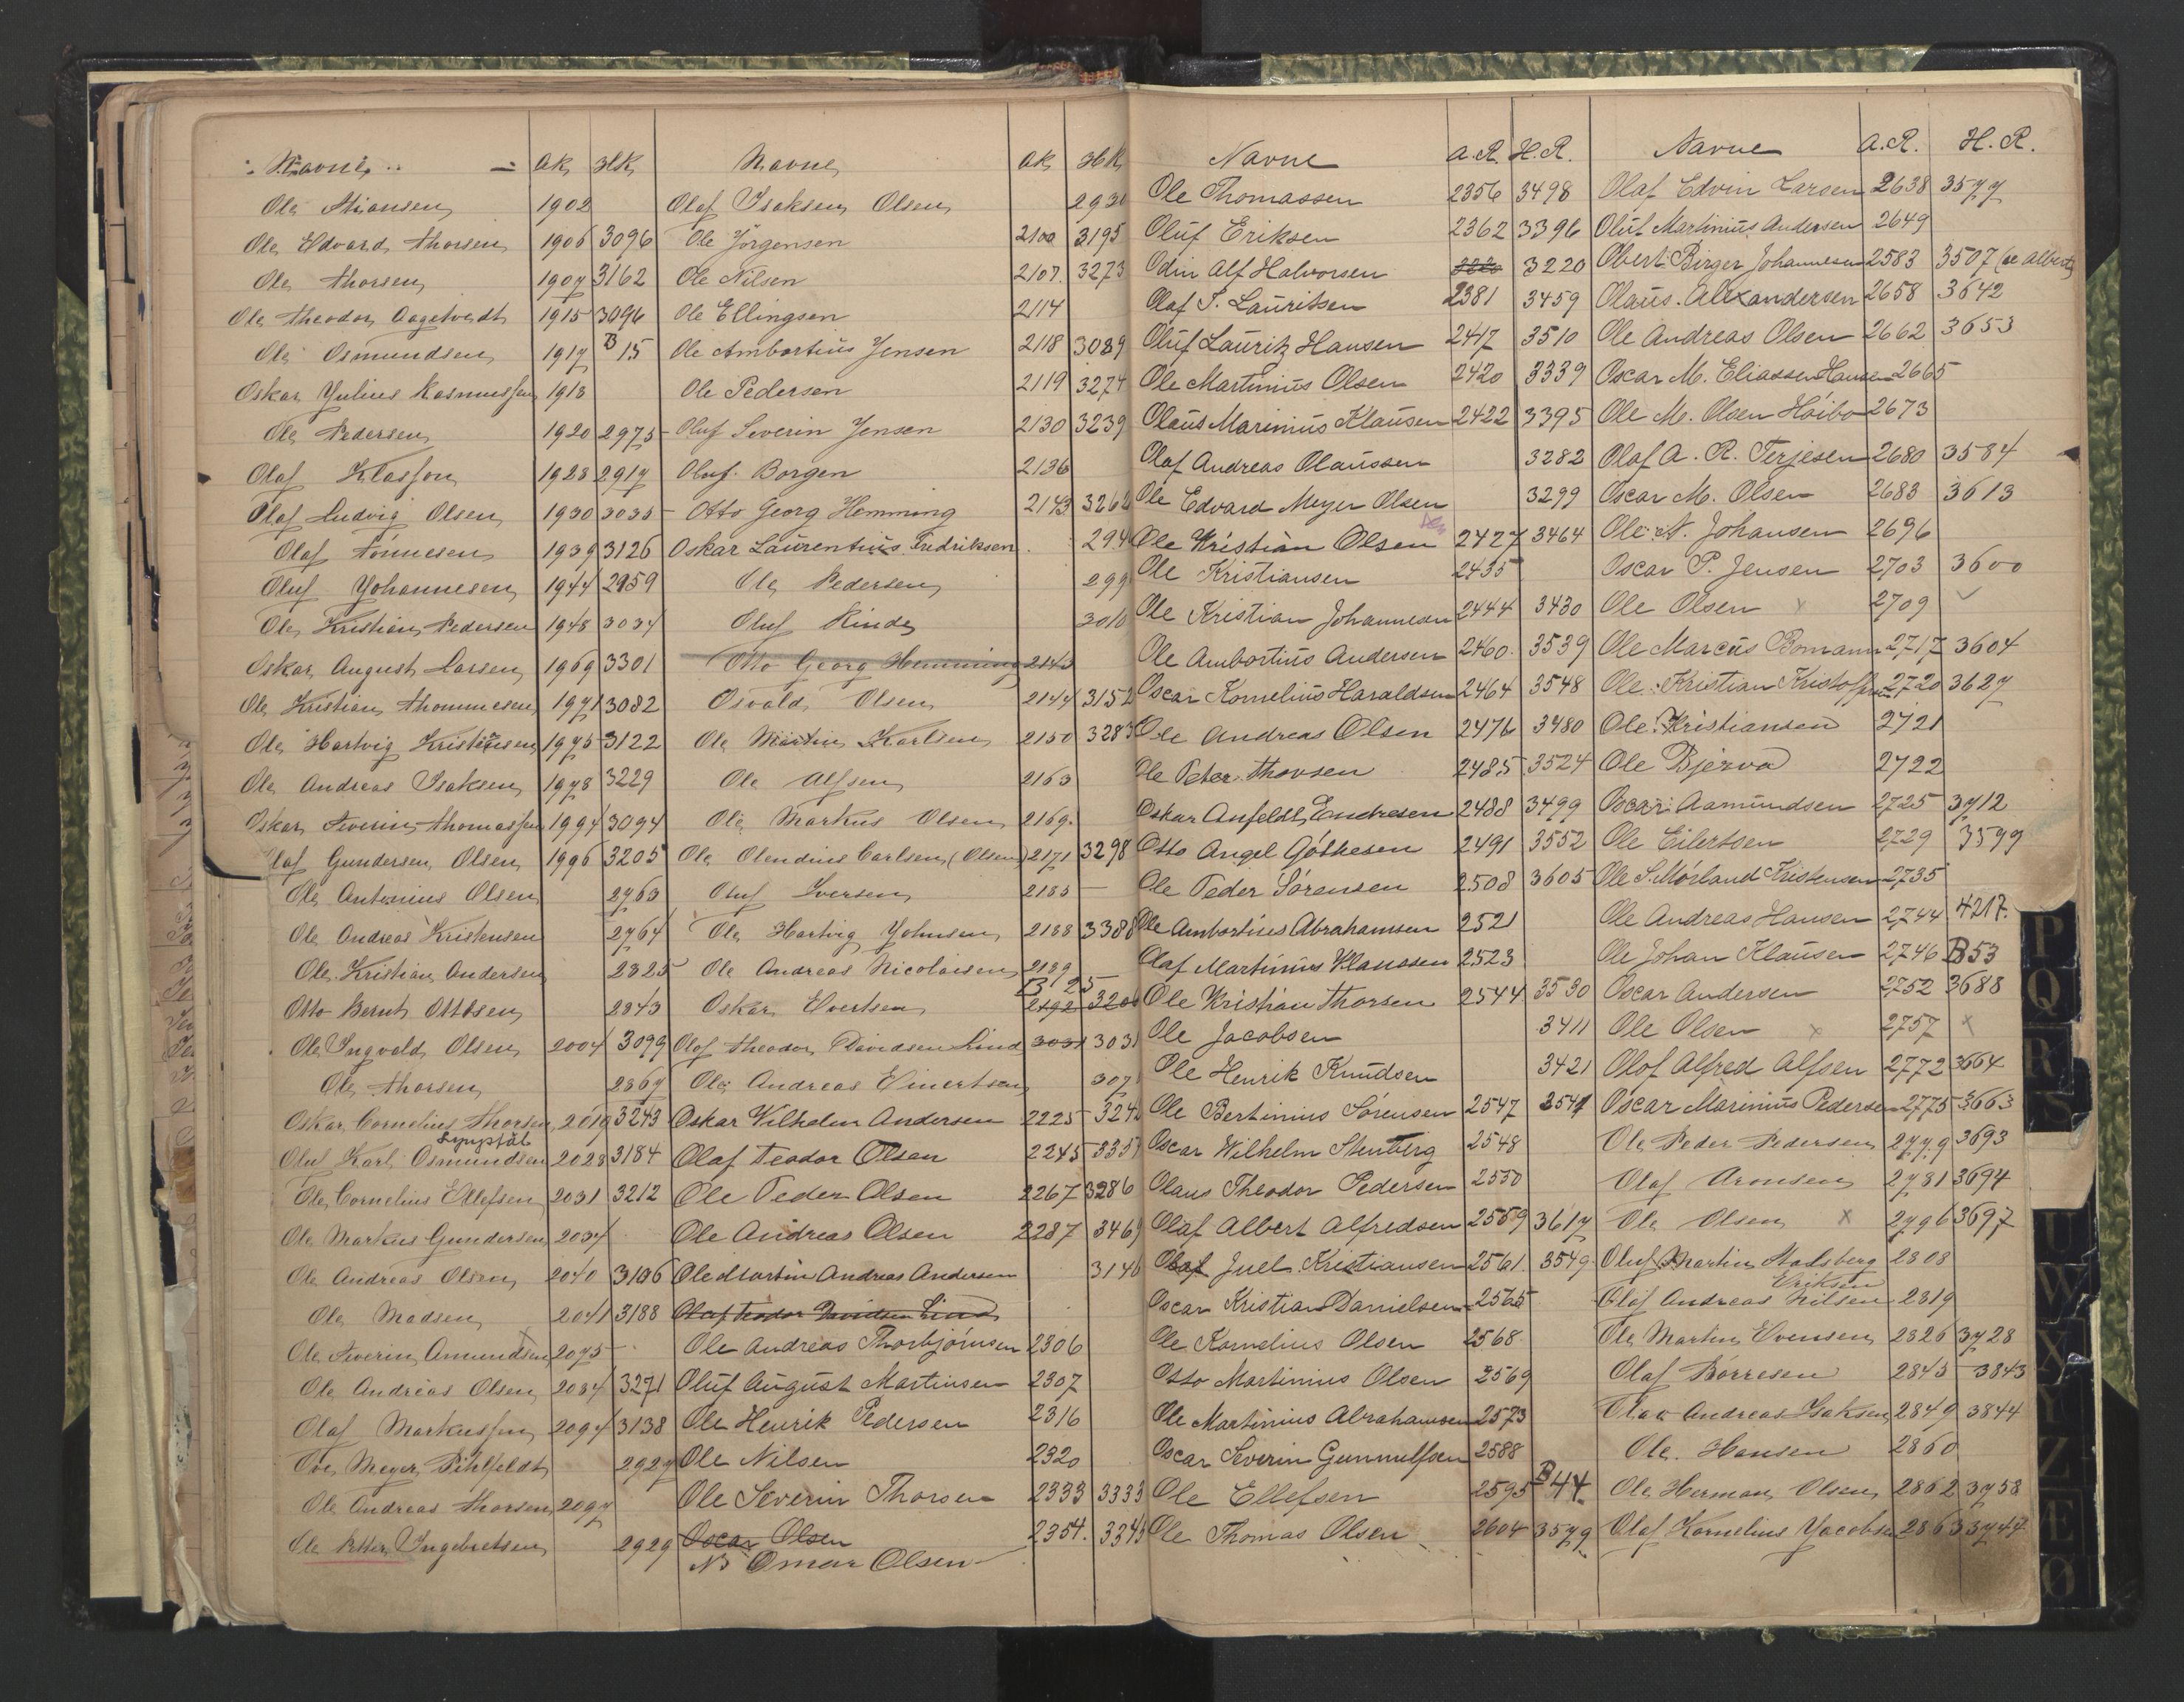 Navne AR HR
Ole Stiansen 1902
Ole Edvard Thorsen 1906 3096
Ole Thorsen 1907 3162
Ole Theodor Aagetvedt 1915 3096
Ole Osmundsen 1917 B 15
Oskar Julius Rasmussen 1918
Ole Pedersen 1920 2975
Olaf Klassen 1928 2917
Olaf Ludvig Olsen 1930 3035
Olaf Tönnesen 1939 3126
Oluf Johannesen 1944 2959
Ole Kristian Pedersen 1948 3034
Oskar August Larsen 1969 3301
Ole Kristian Thommesen 1971 3082
Ole Hartvig Kristensen 1975 3122
Ole Andreas Isaksen 1978 3229
Oskar Severin Thomassen 1994 3094
Olaf Gundersen Olsen 1996 3205
Ole Antonius Olsen 2763
Ole Andreas Kristensen 2764
Ole Kristian Andersen 2825
Otto Bernt Ottosen 2843
Ole Ingvald Olsen 2004 3099
Ole Thorsen 2869
Oskar Cornelius Thorsen 2019 3243
Lyngdal
Oluf Karl Osmundsen 2028 3184
Ole Cornelius Ellefsen 2031 3212
Ole Markus Gundersen 2034
Ole Andreas Olsen 2040 3106
Ole Madsen 2041 3188
Ole Severin Amundsen 2075
Ole Andreas Olsen 2084 3271
Olaf Markussen 2094 3138
Ove Meyer Pihlfeldt 2927
Ole Andreas Thorsen 2097
Ole Petter Ingebretsen 2929
Navne AR HR
Olaf Isaksen Olsen 2930
Ole Jörgensen 2100 3195
Ole Nilsen 2107. 3273
Ole Ellingsen 2114
Ole Ambortius Jensen 2118 3089
Ole Pedersen 2119 3274
Oluf Severin Jensen 2130 3239
Oluf Borgen 2136
Otto Georg Hemming 2143 3262
Oskar Laurentius Fredriksen 294
Ole Pedersen 299
Oluf Rinde 3010
Otto Georg Hemming 2143
Osvald Olsen 2144 3152
Ole Martin Karlsen 2150 3283
Ole Alfsen 2163
Ole Markus Olsen 2169.
Ole Olendius Carlsen (Olsen) 2171 3298
Oluf Iversen 2185 —
Ole Hartvig Johnsen 2188 3388
Ole Andreas Nicolaisen 2189
B 25
Oskar Evertsen 2192 320
Olof Theodor Davidsen Lind 3031 3031
Ole Andreas Einertsen 307
Oskar Wilhelm Andersen 2225 324
Olaf Teodor Olsen 2245 335
Ole Peder Olsen 2267 3286
Ole Andreas Olsen 2287 3469
Ole Martin Andreas Andersen 3146
Olaf Teodor Davidsen Lind
Ole Andreas Thorbjörnsen 2306
Oluf August Martinsen 2307
Ole Henrik Pedersen 2316
Ole Nilsen 2320
Ole Severin Thorsen 2333 3333
Oscar Olsen 2354. 3343
NB Omar Olsen
Navne A.R. H.R.
Ole Thomassen 2356 3498
Oluf Eriksen 2362 3396
Odin Alf Halvorsen 3220 3220
Olaf T. Lauritsen 2381 3459
Oluf Lauritz Hansen 2417 3510
Ole Martinius Olsen 2420 3339
Olaus Marinius Klausen 2422 3395
Olaf Andreas Olaussen 3282
Ole Edvard Meyer Olsen 3299
Ole Kristian Olsen 2427 3464
Ole Kristiansen 2435
Ole Kristian Johannesen 2444 3430
Ole Ambortius Andersen 2460. 3539
Oscar Kornelius Haraldsen 2464 3548
Ole Andreas Olsen 2476 3480
Ole Peter Thorsen 2485 3524
Oskar Anfeldt Endresen 2488 3499
Otto Angel Göthesen 2491 3552
Ole Peder Sörensen 2508 3605
Ole Ambortius Abrahamsen 2521
Olaf Martinius Klaussen 2523
Ole Kristian Thorsen 2544 3530
Ole Jacobsen 3411
Ole Henrik Knudsen 3421
Ole Bertinius Sörensen 2547 3547
Oscar Wilhelm Stenberg 2548
Olaus Theodor Pedersen 2550
Olaf Albert Alfredsen 2559 3617
Olaf Juel Kristiansen 2561. 3549
Oscar Kristian Danielsen 2565
Ole Kornelius Olsen 2568
Otto Martinius Olsen 2569
Ole Martinius Abrahamsen 2573
Oscar Severin Gunnulfsen 2588
Ole Ellefsen 2595 B 44.
Ole Thomas Olsen 2604 3579
Navne A.R. H.R.
Olaf Edvin Larsen 2638 3577
Oluf Martinius Andersen 2649
Obert Birger Johannesen 2583 3507 (se Albert)
Olaus Alexandersen 2658 3642
Ole Andreas Olsen 2662 3653
Oscar M. Eliassen Hansen 2665
Ole M. Olsen Höibo 2673
Olaf A. R. Terjesen 2680 3584
Oscar M. Olsen 2683 3613
Ole N. Johansen 2696
Oscar P. Jensen 2703 3600
Ole Olsen x 2709
Ole Marcus Bomann 2717 3604
Ole Kristian Kristoffersen 2720 3627
Ole Kristiansen 2721
Ole Bjerva 2722
Oscar Aamundsen 2725 3712
Ole Eilertsen 2729 3599
Ole S. Mörland Kristensen 2735
Ole Andreas Hansen 2744 4217.
Ole Johan Klausen 2746 B53
Oscar Andersen 2752 3688
Ole Olsen x 2757 x
Olof Alfred Alfsen 2772 3664
Oscar Marinius Pedersen 2775 3663
Ole Peder Pedersen 2779 3693
Olaf Aronsen 2781 3694
Ole Olsen x 2796 3697
Oluf Martin Stalsberg 2808
Eriksen
Olof Andreas Nilsen 2819
Ole Martin Evensen 2826 3728
Olaf Börresen 2845 3843
Olav Andreas Isaksen 2849 3844
Ole Hansen 2860
Ole Herman Olsen 2862 3758
Olaf Kornelius Jacobsen 2863 3747
P
Q
R
S
U
W
X
Y
Z
Æ
Ø